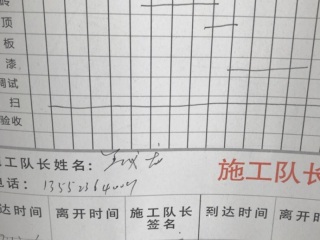 砖
顶
板
漆
调试
扫
验收
施工队长姓名:
施工队长
电话:
达时间 离开时间 施工队长签名 到达时间 离开时间